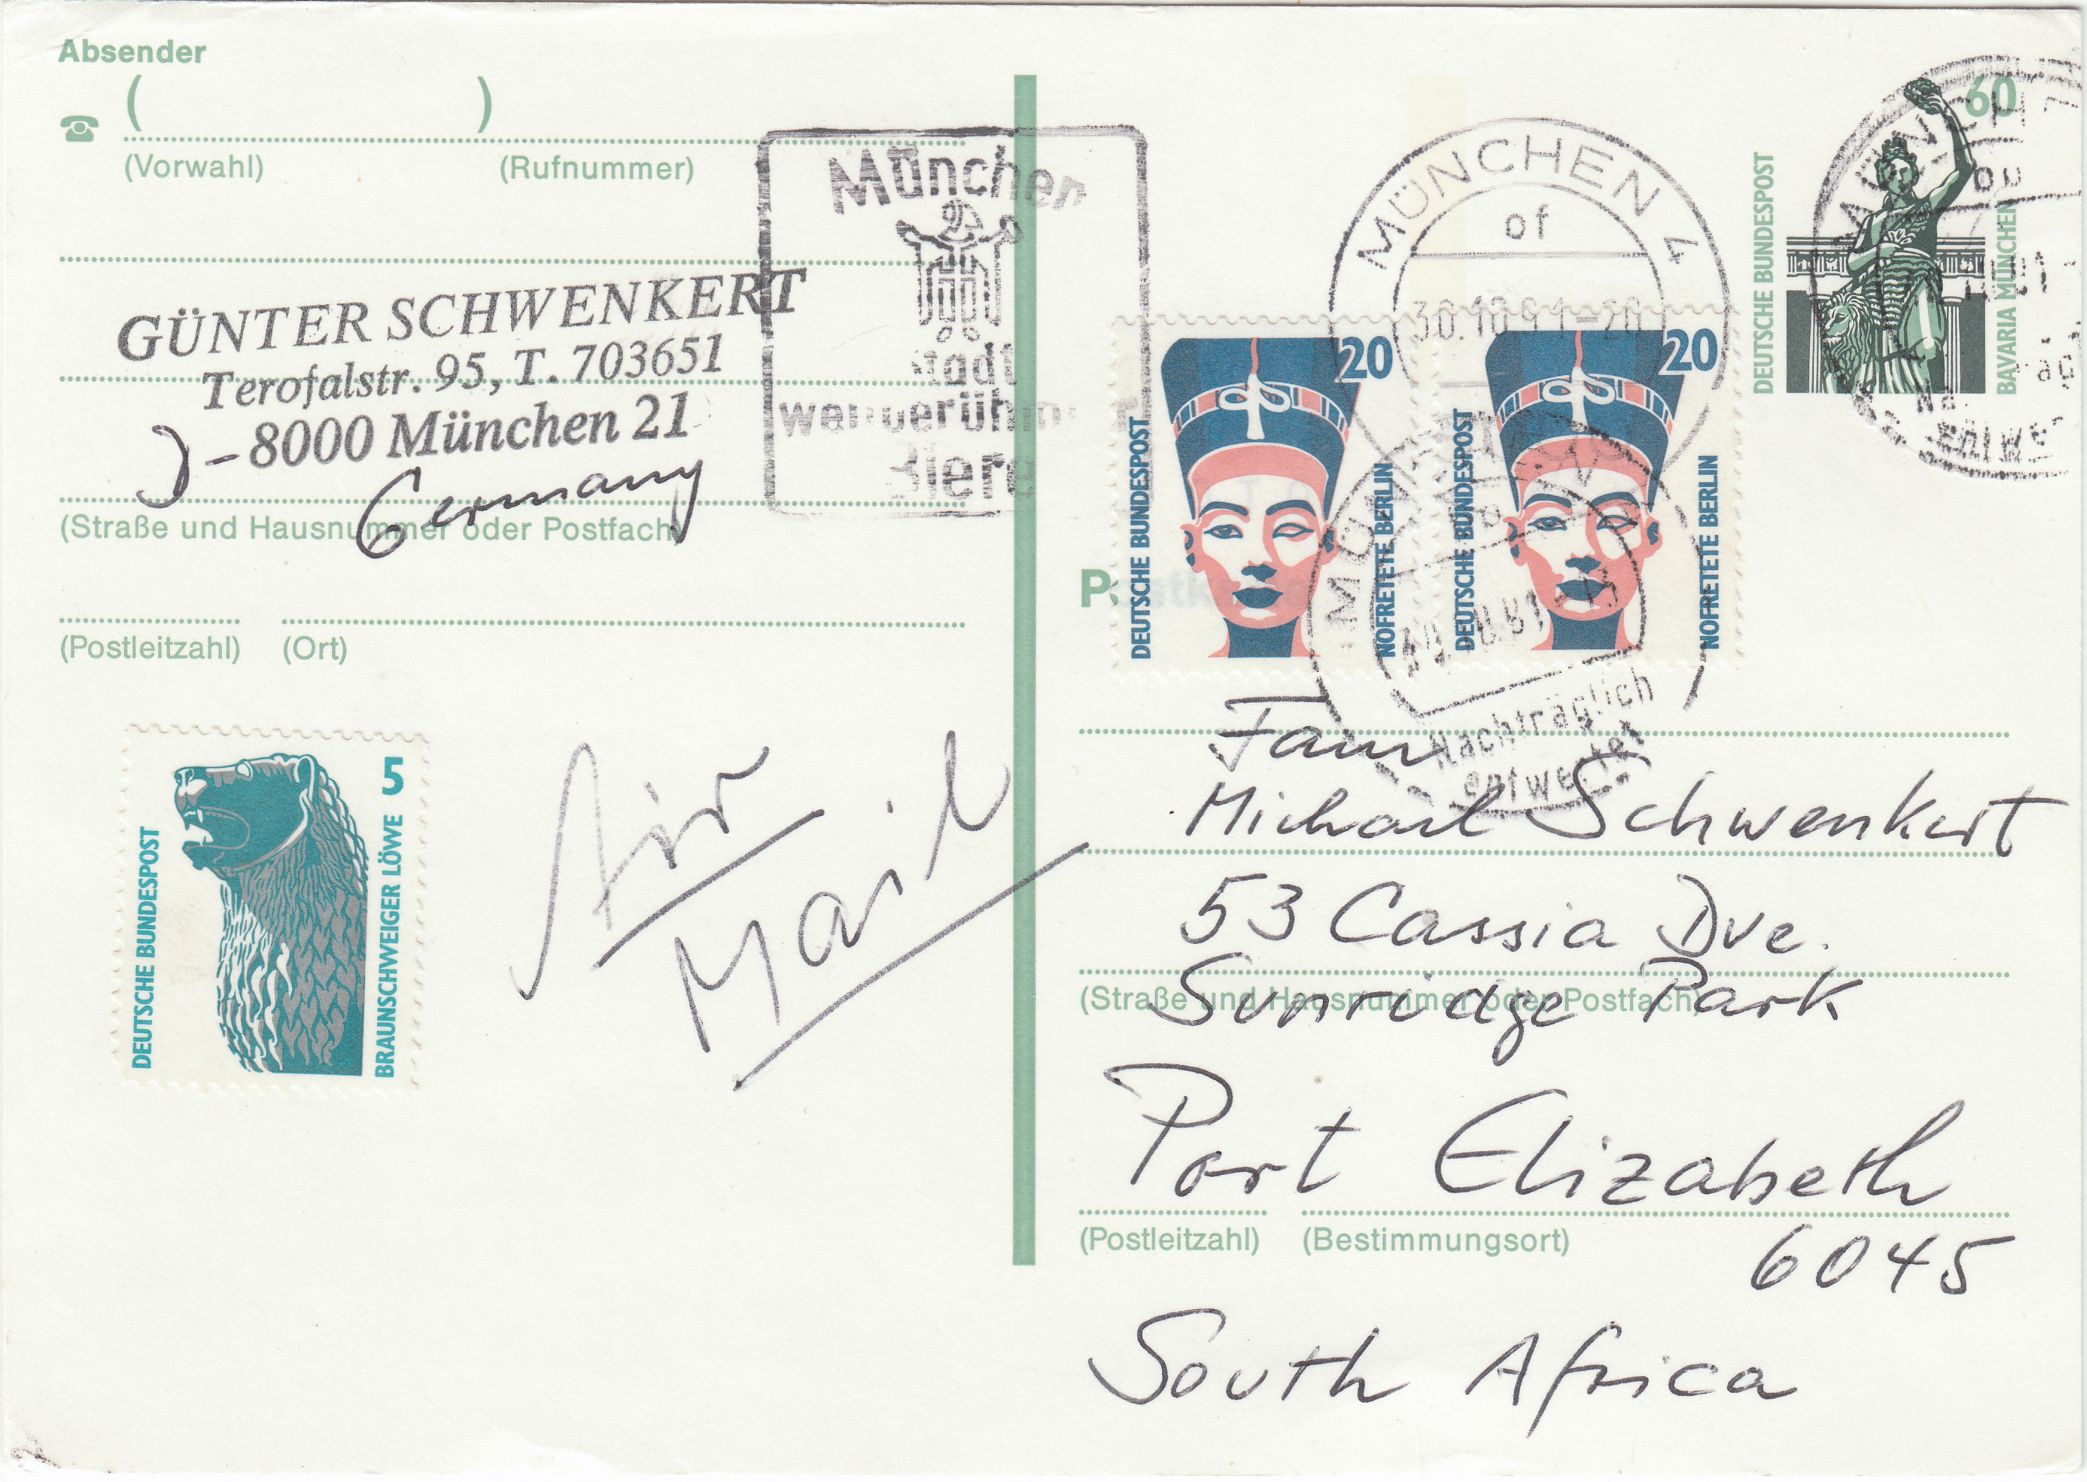 Absender
(Vorwahl) (Rufnummer)
GÜNTER SCHWENKERT
Terofalstr. 95, T. 703651
D-8000 München 21
Germany
(Straße und Hausnummer oder Postfach)
(Postleitzahl) (Ort)
München
Stadt
weltberühmter
Biere
MÜNCHEN 4
of
30.10.91-20
60
DEUTSCHE BUNDESPOST
BAVARIA MÜNCHEN
20
DEUTSCHE BUNDESPOST
NOFRETETE BERLIN
20
DEUTSCHE BUNDESPOST
NOFRETETE BERLIN
Nachträglich
entwertet
5
DEUTSCHE BUNDESPOST
BRAUNSCHWEIGER LÖWE
Air
Mail
Fam
Michael Schwenkert
53 Cassia Dve.
(Straße und Hausnummer oder Postfach)
Sunridge Park
Port Elizabeth
(Postleitzahl) (Bestimmungsort)
6045
South Africa